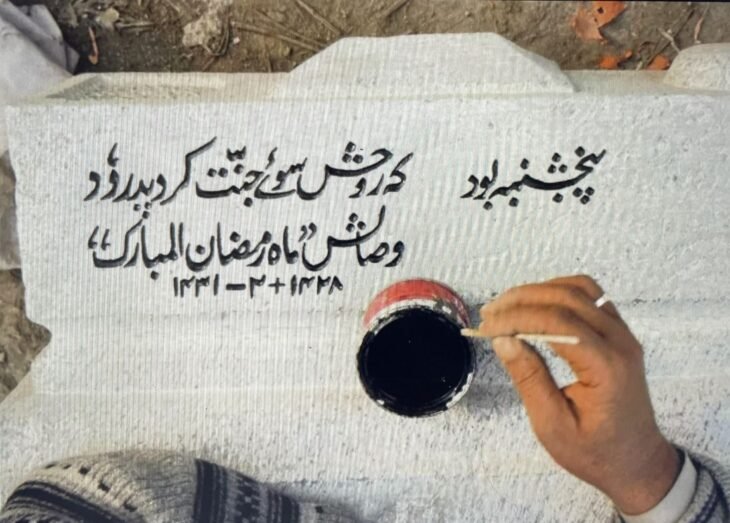 پنجشنبہ بود کہ روحش سوئے جنّت کرد پدرود
وصالش “ماہ رمضان المبارک”
۱۴۲۸ + ۳ – ۱۴۳۱